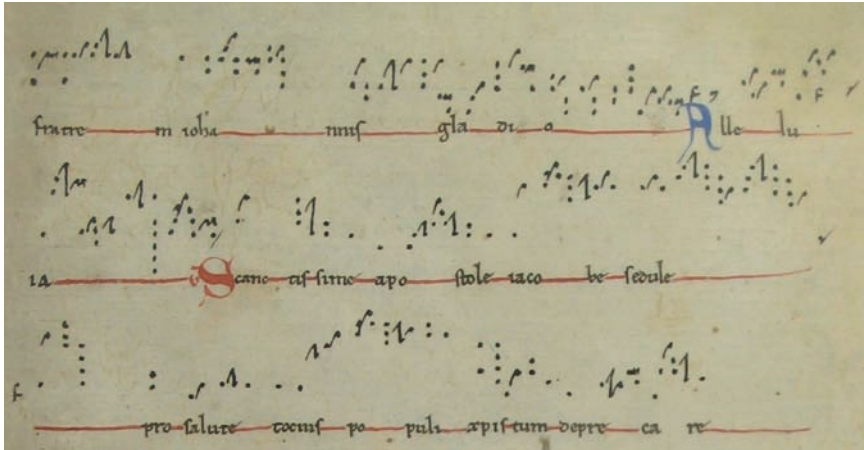 fratre m ioha nnis gla di o Alle lu
ia Sanc tis sime apo stole iaco be sedule
pro salute tocius po puli xpistum depre ca re